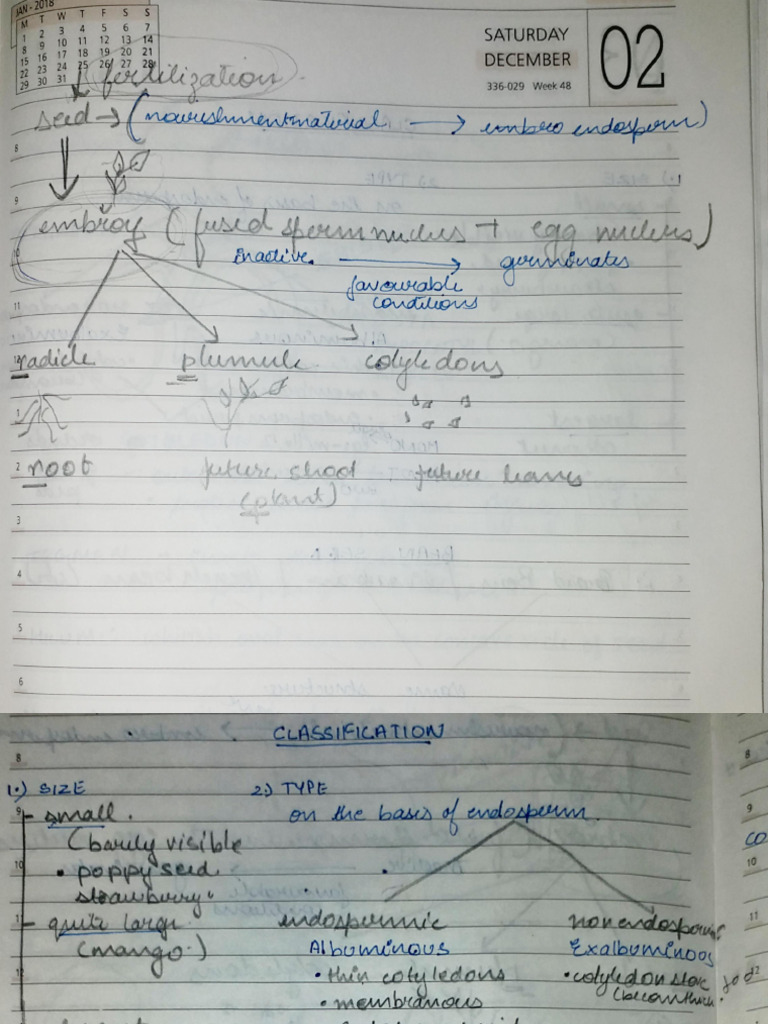 JAN - 2018
M T W T F S S
1 2 3 4 5 6 7
8 9 10 11 12 13 14
15 16 17 18 19 20 21
22 23 24 25 26 27 28
29 30 31
SATURDAY
DECEMBER
336-029 Week 48
02
fertilization
seed → (nourishment material → embro endosperm)
embroy (fused sperm nucleus + egg nucleus)
inactive. → germinates
favourable
conditions
radicle plumule cotyledons
root future shoot future leaves
(plant)
8
9
10
11
12
1
2
3
4
5
6
CLASSIFICATION
1.) SIZE 2.) TYPE
- small. on the basis of endosperm.
(barely visible
• poppy seed
strawberry
- quite large endospermic nonendospermic
(mango.) Albuminous Exalbuminous
• thin cotyledons • cotyledon store food
• membranous
8
9
10
11
12
8
9
co
11